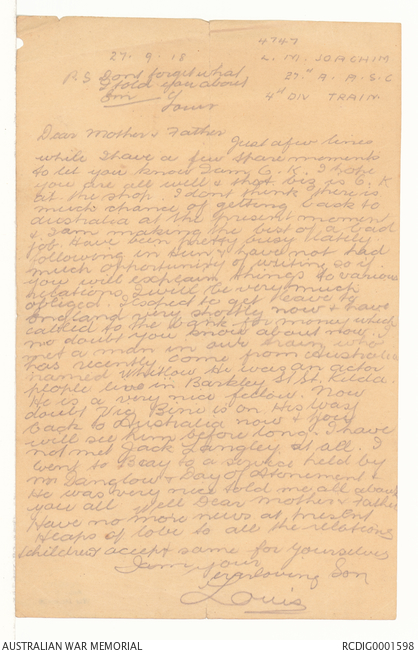 4747
27.9.18 L. M. JOACHIM
P.S Dont forget what 27th A. A. S. C
I told you about 4th DIV TRAIN
Dear Mother & Father
Just a few lines
while I have a few spare moments
to let you know I am O.K. I hope
you are all well & that biz is O.K.
at the shop. I dont think there is
much chance of getting back to
Australia at the present moment
& I am making the best of a bad
job. Have been pretty busy lately
following in Hun & have not had
much opportunity of writing so if
you will explain things to various
relations I will be very much
obliged. I expect to get leave to
England very shortly now & have
cabled to the bank for money which
no doubt you know about now. I
met a man in our train who
has recently come from Australia
named Whitlow He was an actor
people live in Barkley St St. Kilda.
He is a very nice fellow. Now
doubt Vic Bene is on his way
back to Australia now & you
will see him before long. I have
not met Jack Langley at all. I
went to a service held by
Mr Danglow Day of Atonement &
He was very nice told me all about
you all well Dear Mother & Father
Have no more news at present
Heaps of love to all the relations
children & accept same for yourselves
I am your
everloving Son
Louis
AUSTRALIAN WAR MEMORIAL RCDIG0001598